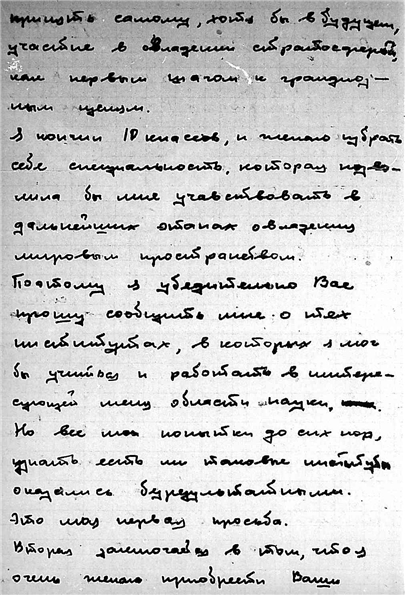 принять самому, хотя бы в будущем,
участие в овладении стратосферой,
как первым шагом к грандиоз-
ным целям.
Я кончил 10 классов, и желаю избрать
себе специальность, которая позво-
лила бы мне учавствовать в
дальнейших этапах овладения
мировым пространством.
Поэтому я убедительно Вас
прошу сообщить мне о тех
институтах, в которых я мог
бы учиться и работать в интере-
сующей меня области науки.
Но все мои попытки до сих пор,
узнать есть ли таковые институты
оказались безрезультатными.
Это моя первая просьба.
Вторая заключается в том, что я
очень желаю приобрести Ваши